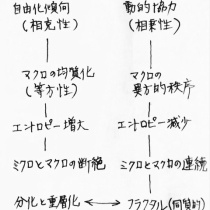 自由化傾向
(相克性)
マクロの均質化
(等方性)
エントロピー増大
ミクロとマクロの断絶
分化と重層化
動的協力
(相乗性)
マクロの
異方的秩序
エントロピー減少
ミクロとマクロの連続
フラクタル(同質的)